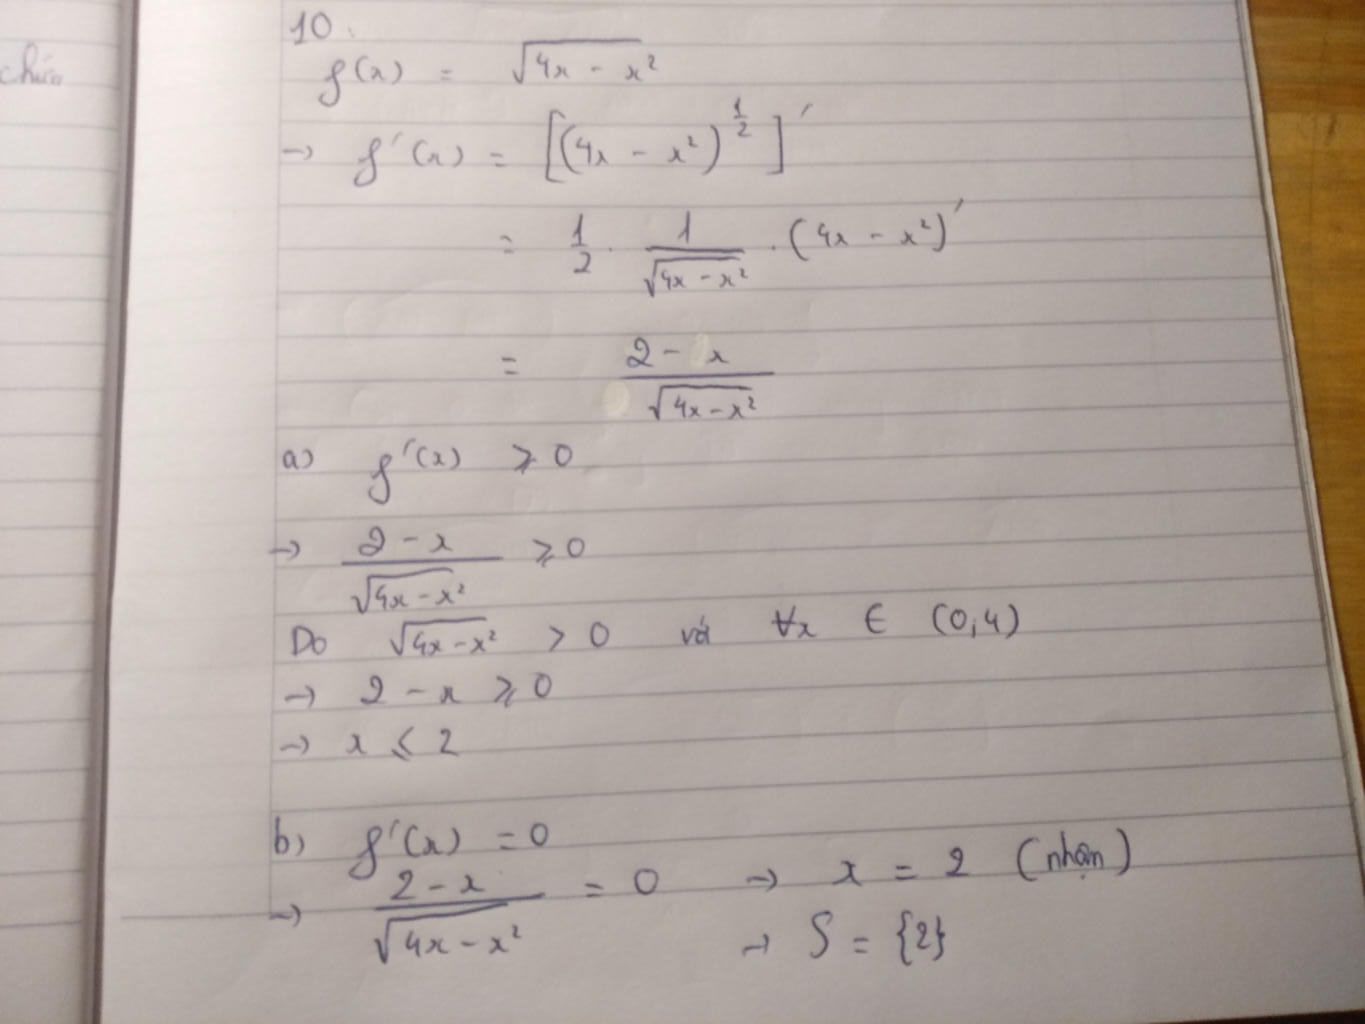 10.
f(x) = √(4x - x²)
→ f'(x) = [(4x - x²)^(1/2)]'
= 1/2 · 1/√(4x-x²) · (4x - x²)'
= (2 - x)/√(4x-x²)
a) f'(x) ⩾ 0
→ (2 - x)/√(4x-x²) ⩾ 0
Do √(4x-x²) > 0 với ∀x ∈ (0,4)
→ 2 - x ⩾ 0
→ x ⩽ 2
b) f'(x) = 0
→ (2-x)/√(4x-x²) = 0 → x = 2 (nhận)
→ S = {2}